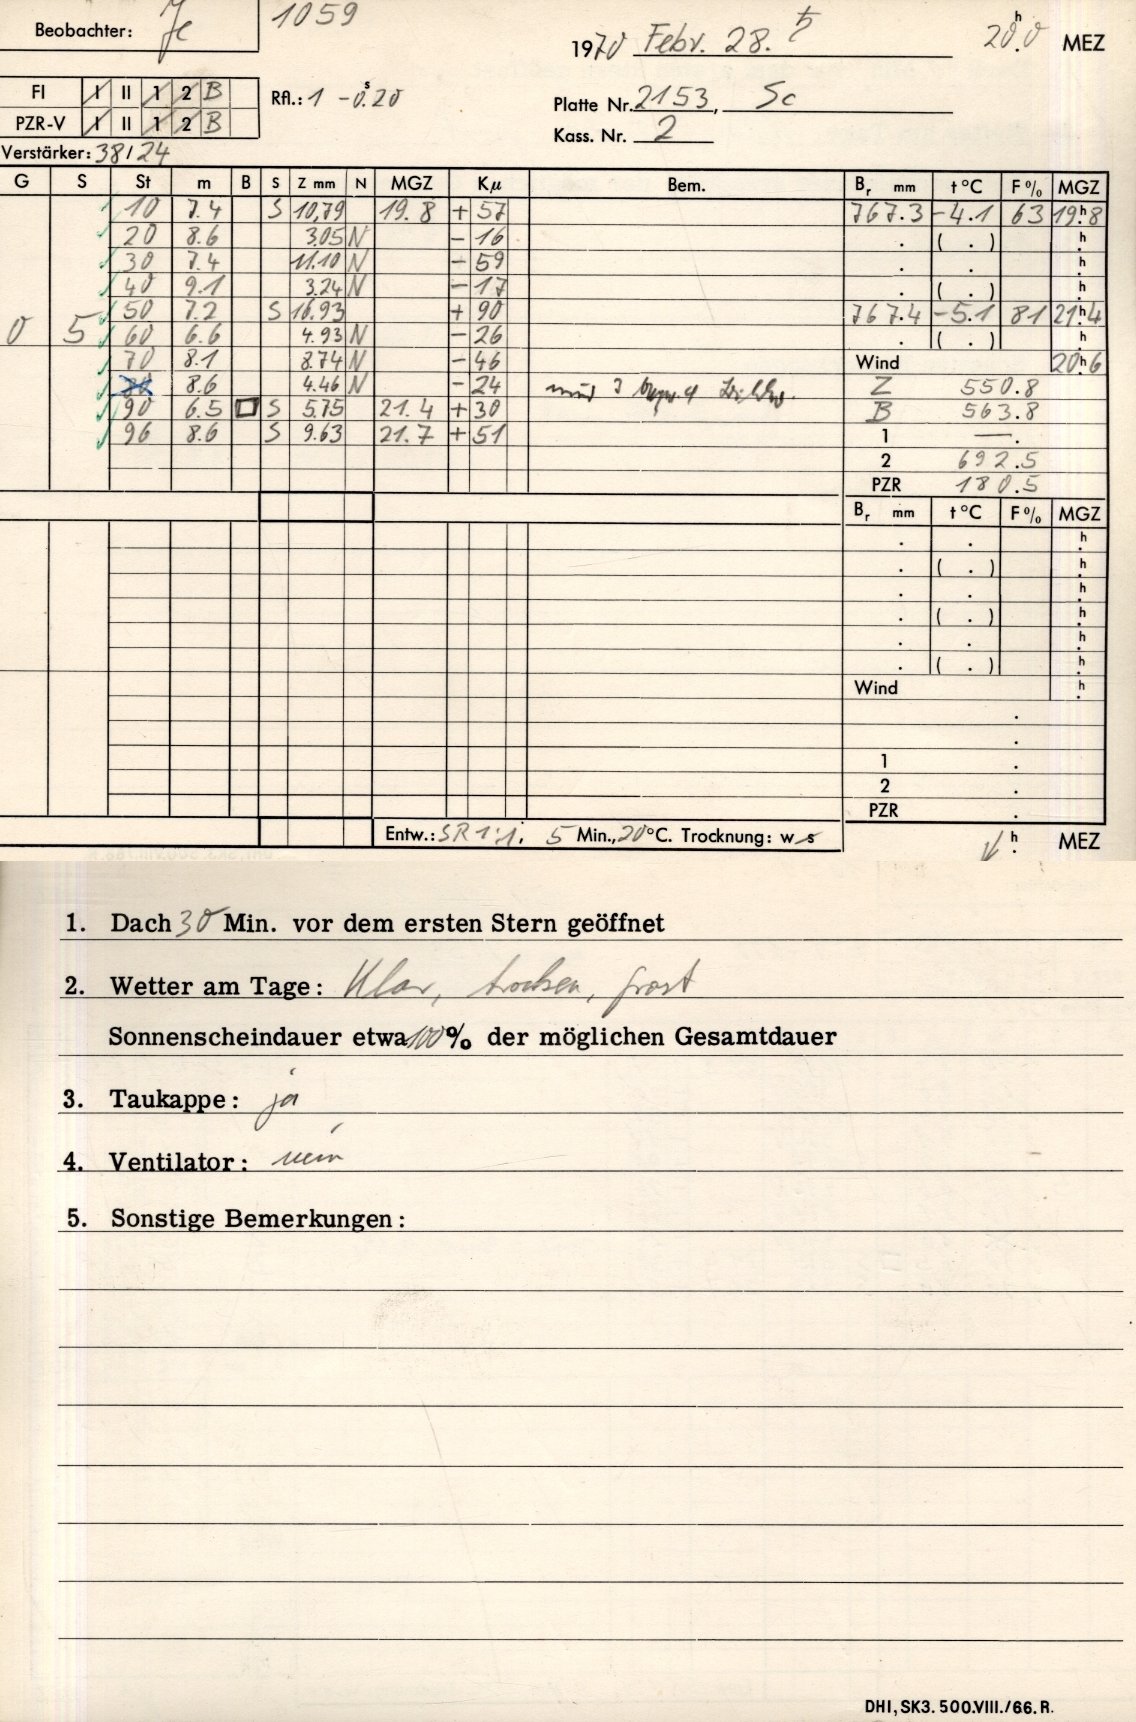 Beobachter: Je 1059
1970 Febr. 28. 20.0 h MEZ
FI I II 1 2 B
Rfl.: 1 -0.20 s
Platte Nr. 2153, Sc
PZR-V I II 1 2 B
Kass. Nr. 2
Verstärker: 38/24
G S St m B S Z mm N MGZ Kμ Bem. Br mm t °C F % MGZ
10 7.4 S 10,79 19.8 + 57 767.3 -4.1 63 19.8 h
20 8.6 3.05 N - 16 . ( . ) h
30 7.4 11.10 N - 59 . . h
40 9.1 3.24 N - 17 . ( . ) h
0 5 50 7.2 S 16.93 + 90 767.4 -5.1 81 21.4 h
60 6.6 4.93 N - 26 . ( . ) h
70 8.1 8.74 N - 46 Wind 20.6 h
80 8.6 4.46 N - 24 Z 550.8
90 6.5 S 5.75 21.4 + 30 B 563.8
96 8.6 S 9.63 21.7 + 51 1 — .
2 692.5
PZR 180.5
Br mm t °C F % MGZ
. . h
. ( . ) h
. . h
. ( . ) h
. . h
. ( . ) h
Wind h
.
.
1 .
2 .
PZR .
Entw.: SR 1:1; 5 Min., 20 °C. Trocknung: w s
h MEZ
1. Dach 30 Min. vor dem ersten Stern geöffnet
2. Wetter am Tage: Klar, trocken, frost
Sonnenscheindauer etwa 100 % der möglichen Gesamtdauer
3. Taukappe: ja
4. Ventilator: nein
5. Sonstige Bemerkungen:
DHI, SK3. 500.VIII./66. R.